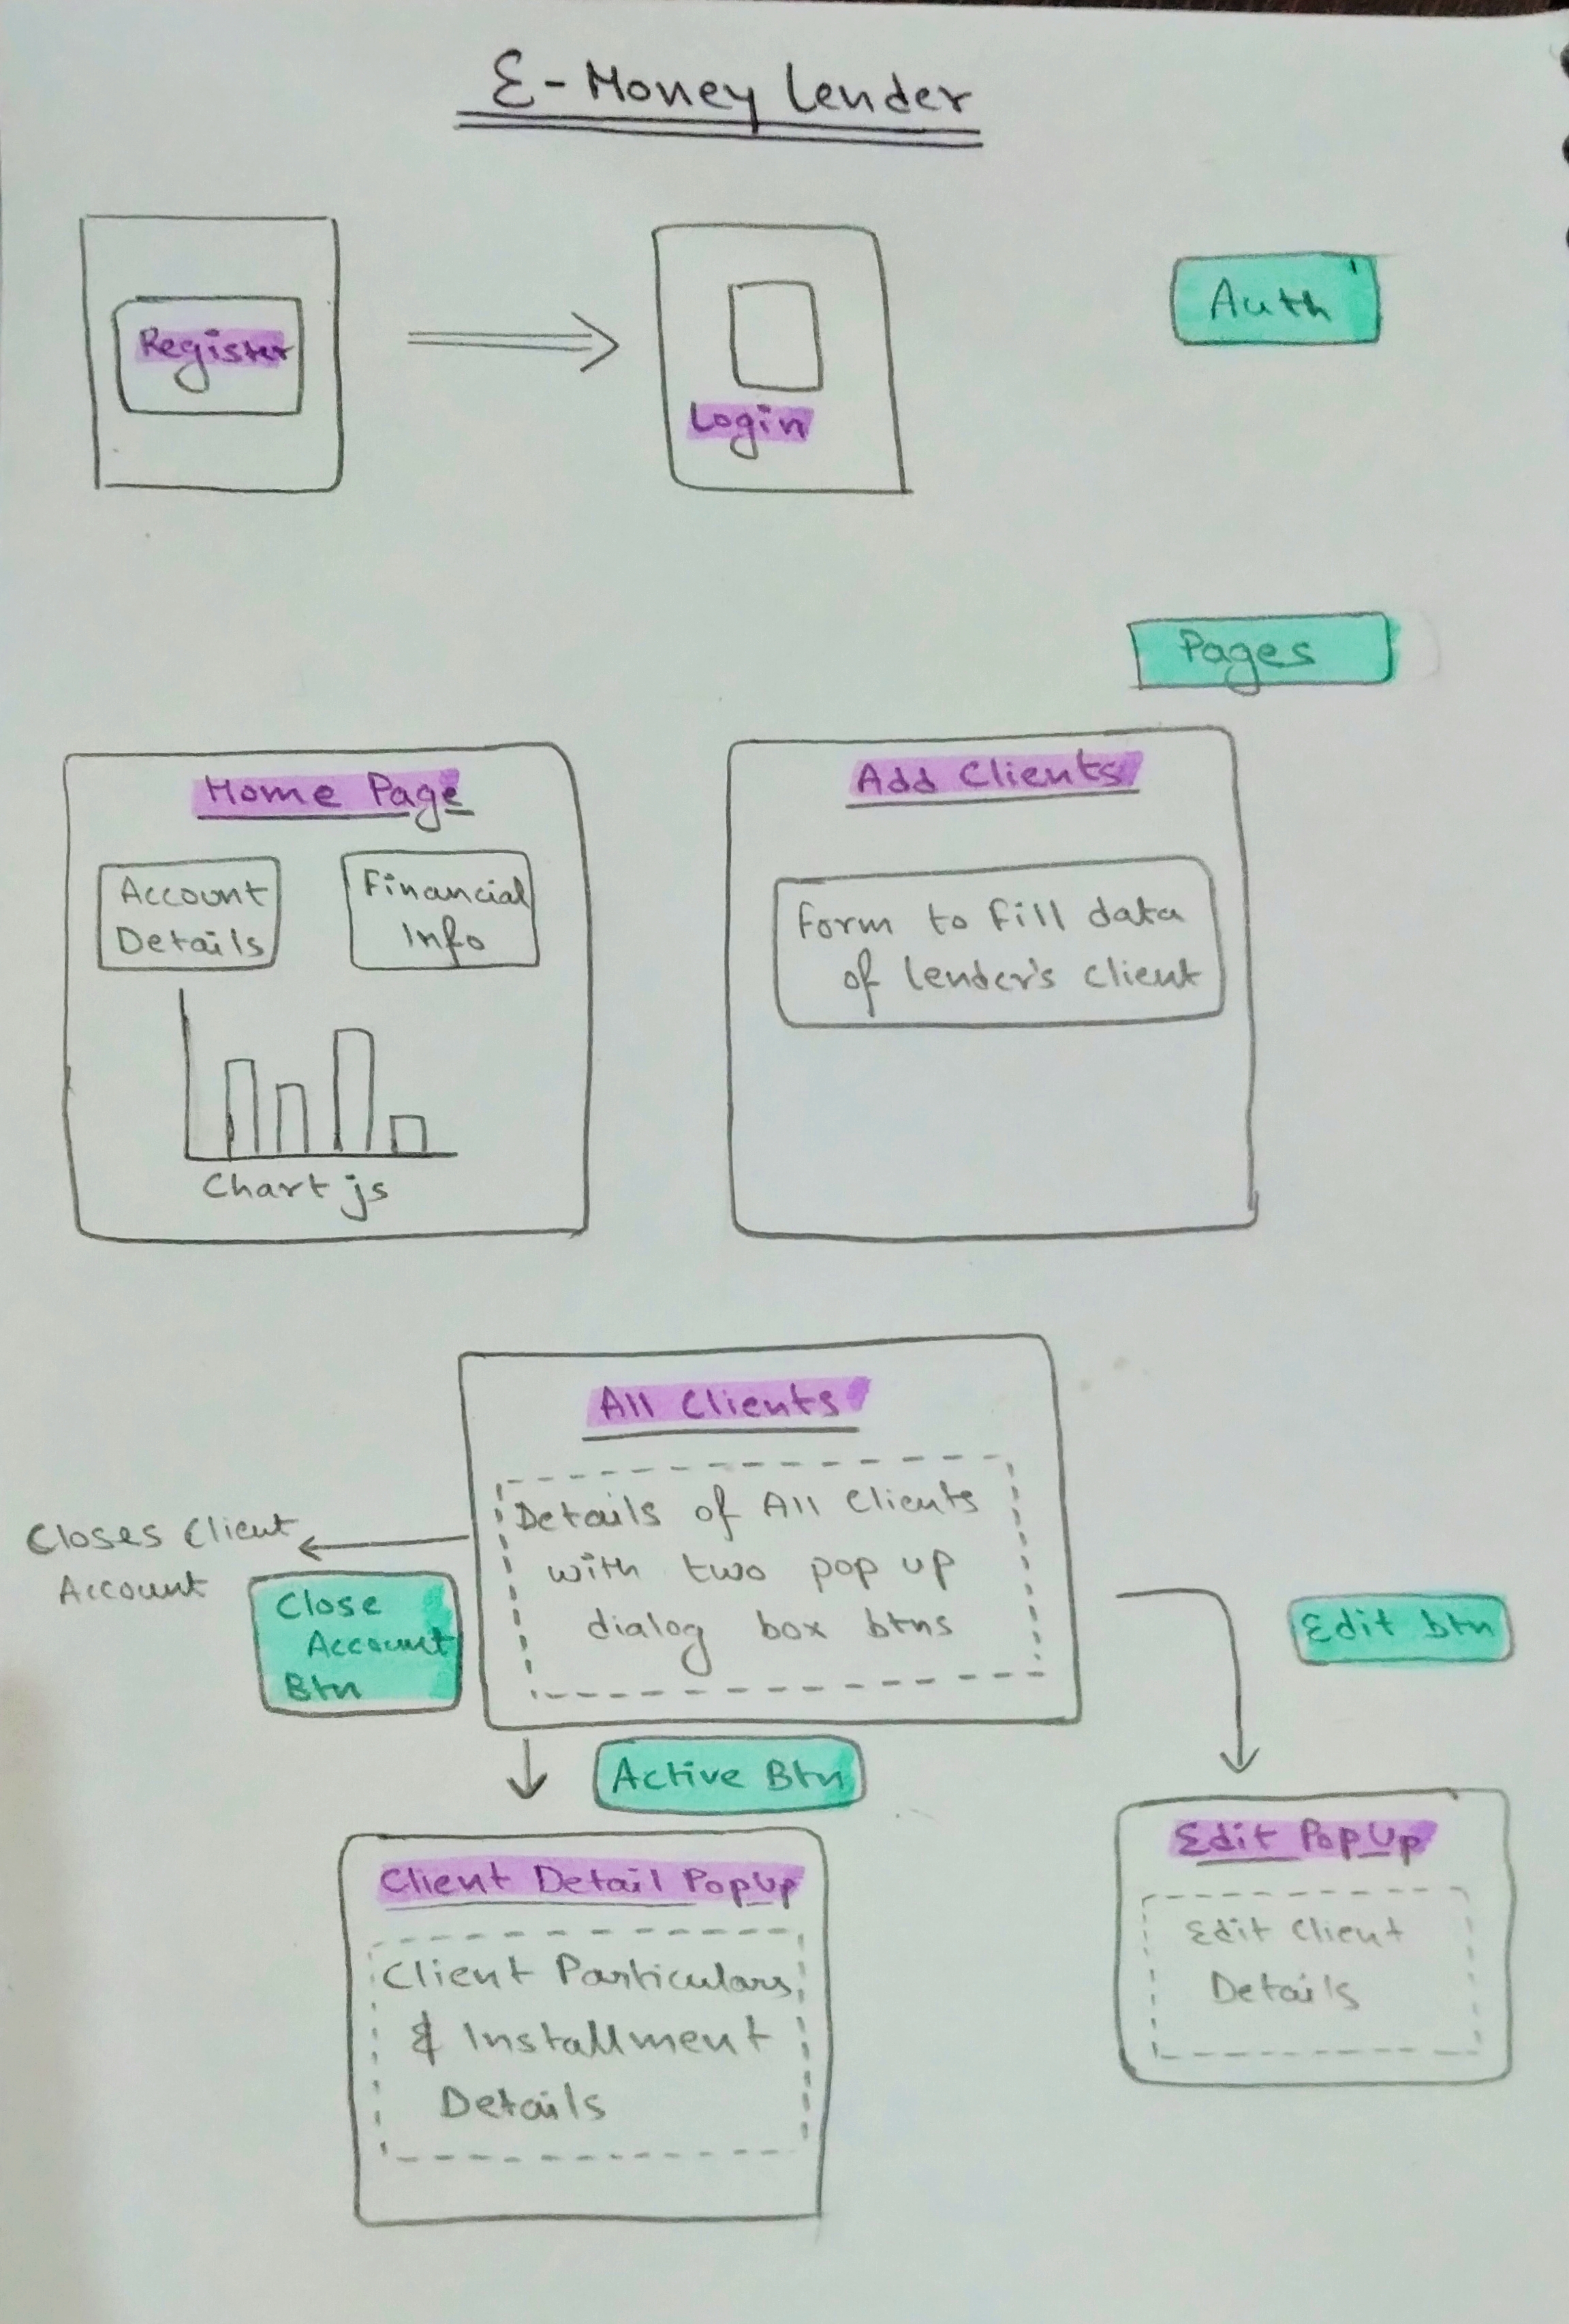 E-Money Lender
Register
Login
Auth
Pages
Home Page
Account
Details
Financial
Info
Chart js
Add Clients
Form to fill data
of lender's client
All Clients
Details of All Clients
with two pop up
dialog box btns
Closes Client
Account
Close
Account
Btn
Edit btn
Active Btn
Client Detail PopUp
Client Particulars
& Installment
Details
Edit PopUp
Edit Client
Details